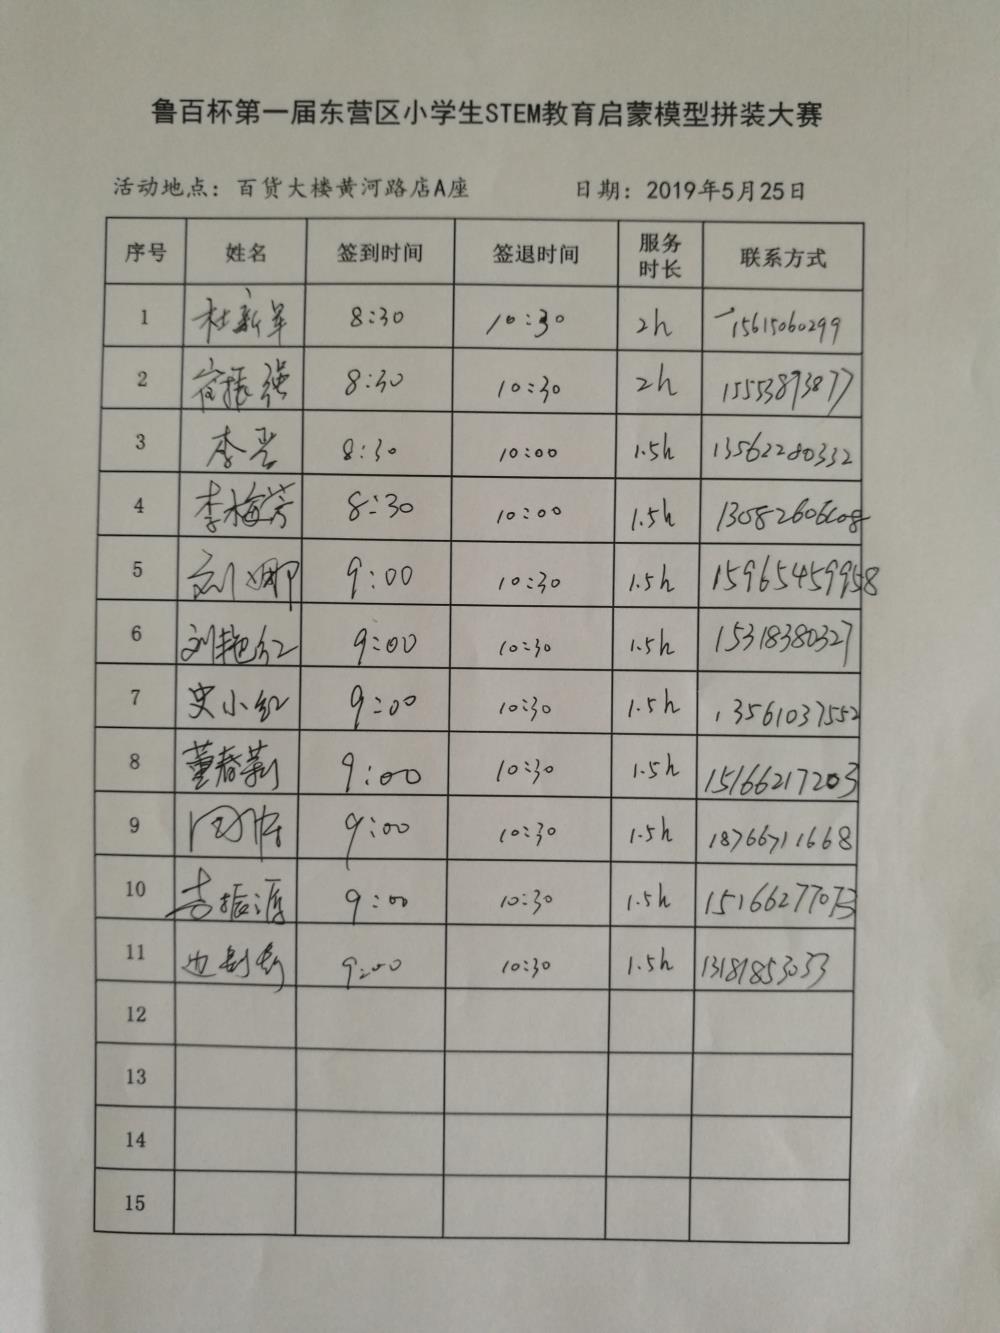 鲁百杯第一届东营区小学生STEM教育启蒙模型拼装大赛
活动地点：百货大楼黄河路店A座 日期：2019年5月25日
序号 姓名 签到时间 签退时间 服务时长 联系方式
1 杜新军 8:30 10:30 2h 15615060299
2 振强 8:30 10:30 2h 15553893877
3 李 8:30 10:00 1.5h 13562280332
4 李梅芳 8:30 10:00 1.5h 13082606608
5 刘娜 9:00 10:30 1.5h 15965459958
6 刘艳红 9:00 10:30 1.5h 15318380327
7 史小红 9:00 10:30 1.5h 13561037552
8 董春 9:00 10:30 1.5h 15166217203
9 9:00 10:30 1.5h 18766711668
10 振 9:00 10:30 1.5h 15166277073
11 9:00 10:30 1.5h
12
13
14
15